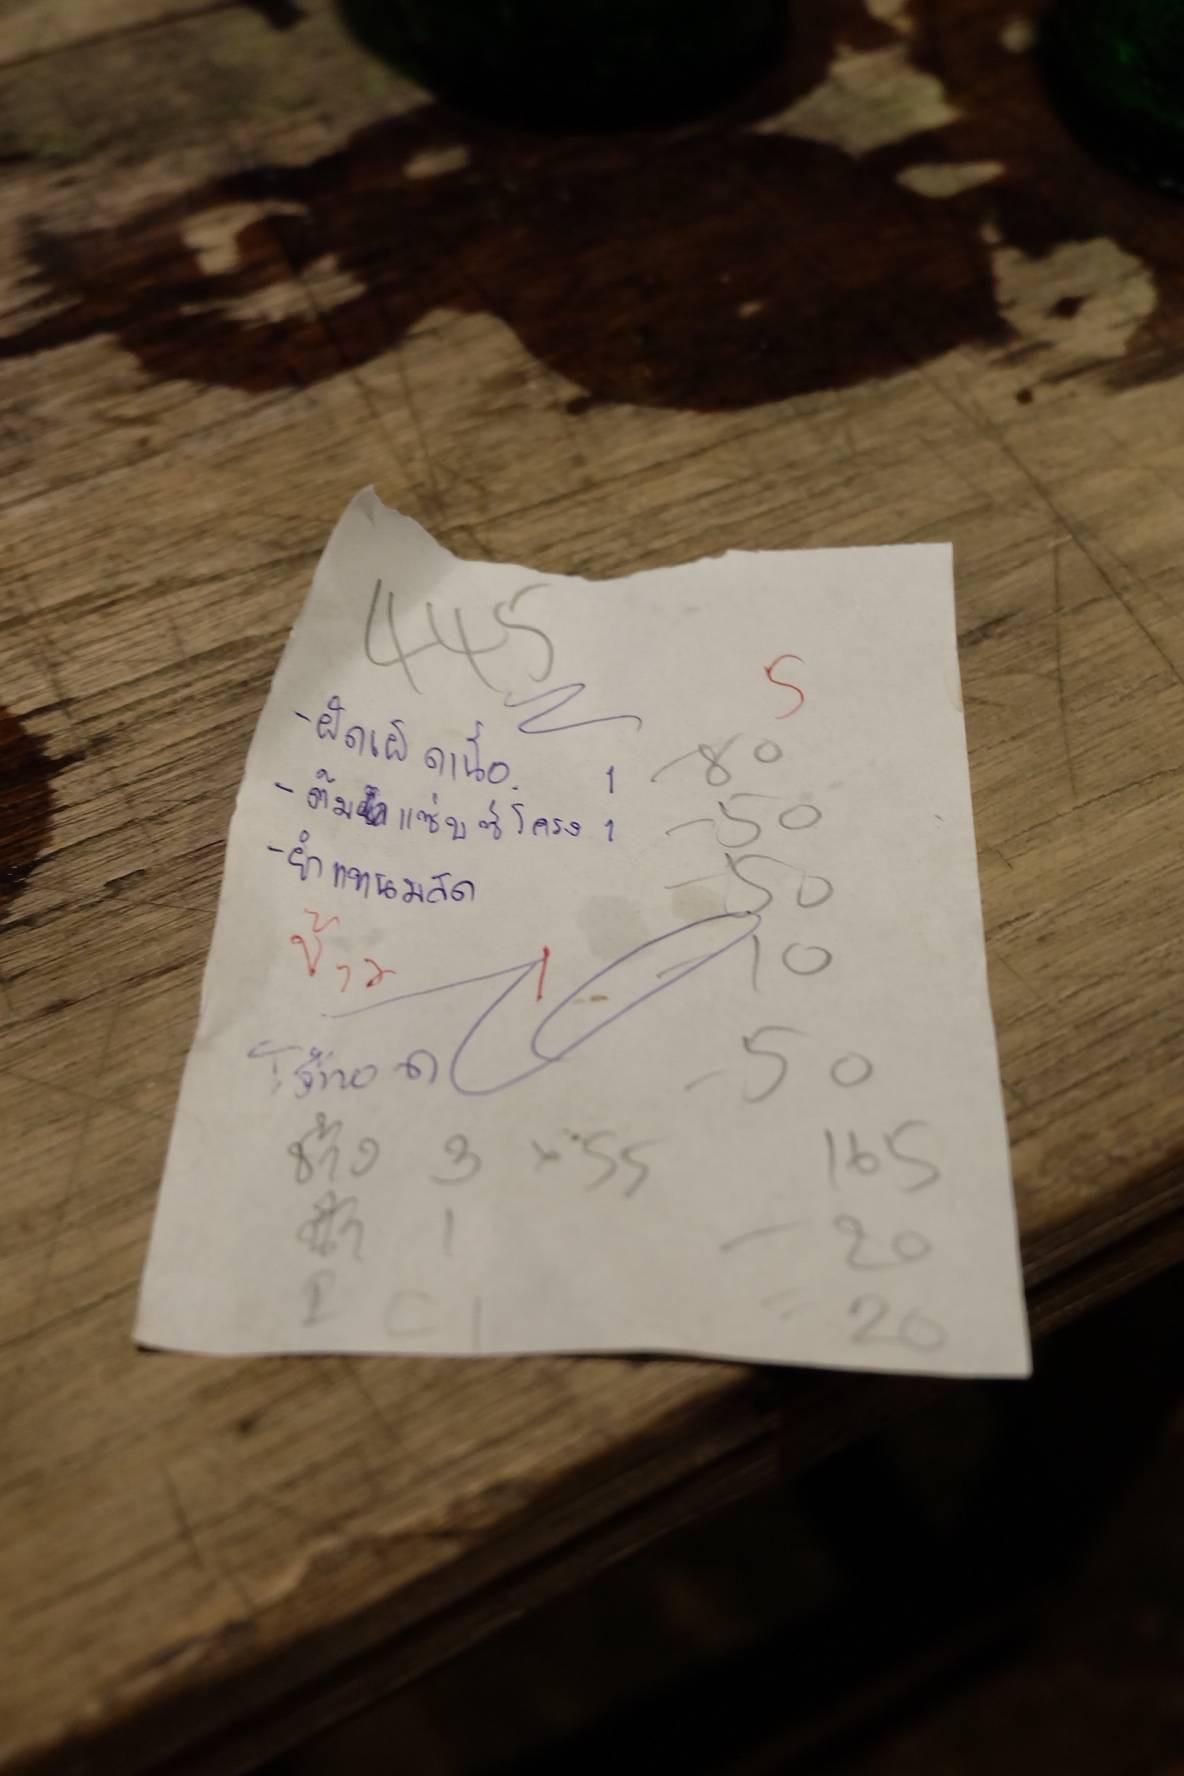 445
5
- ผัดเผ็ดเนื้อ 1 - 80
- ต้มแซ่บซี่โครง 1 - 50
- ยำแหนมสด - 50
ข้าว 1 - 10
ทอด - 50
ช้าง 3 × 55 165
น้ำ 1 - 20
1 - 20